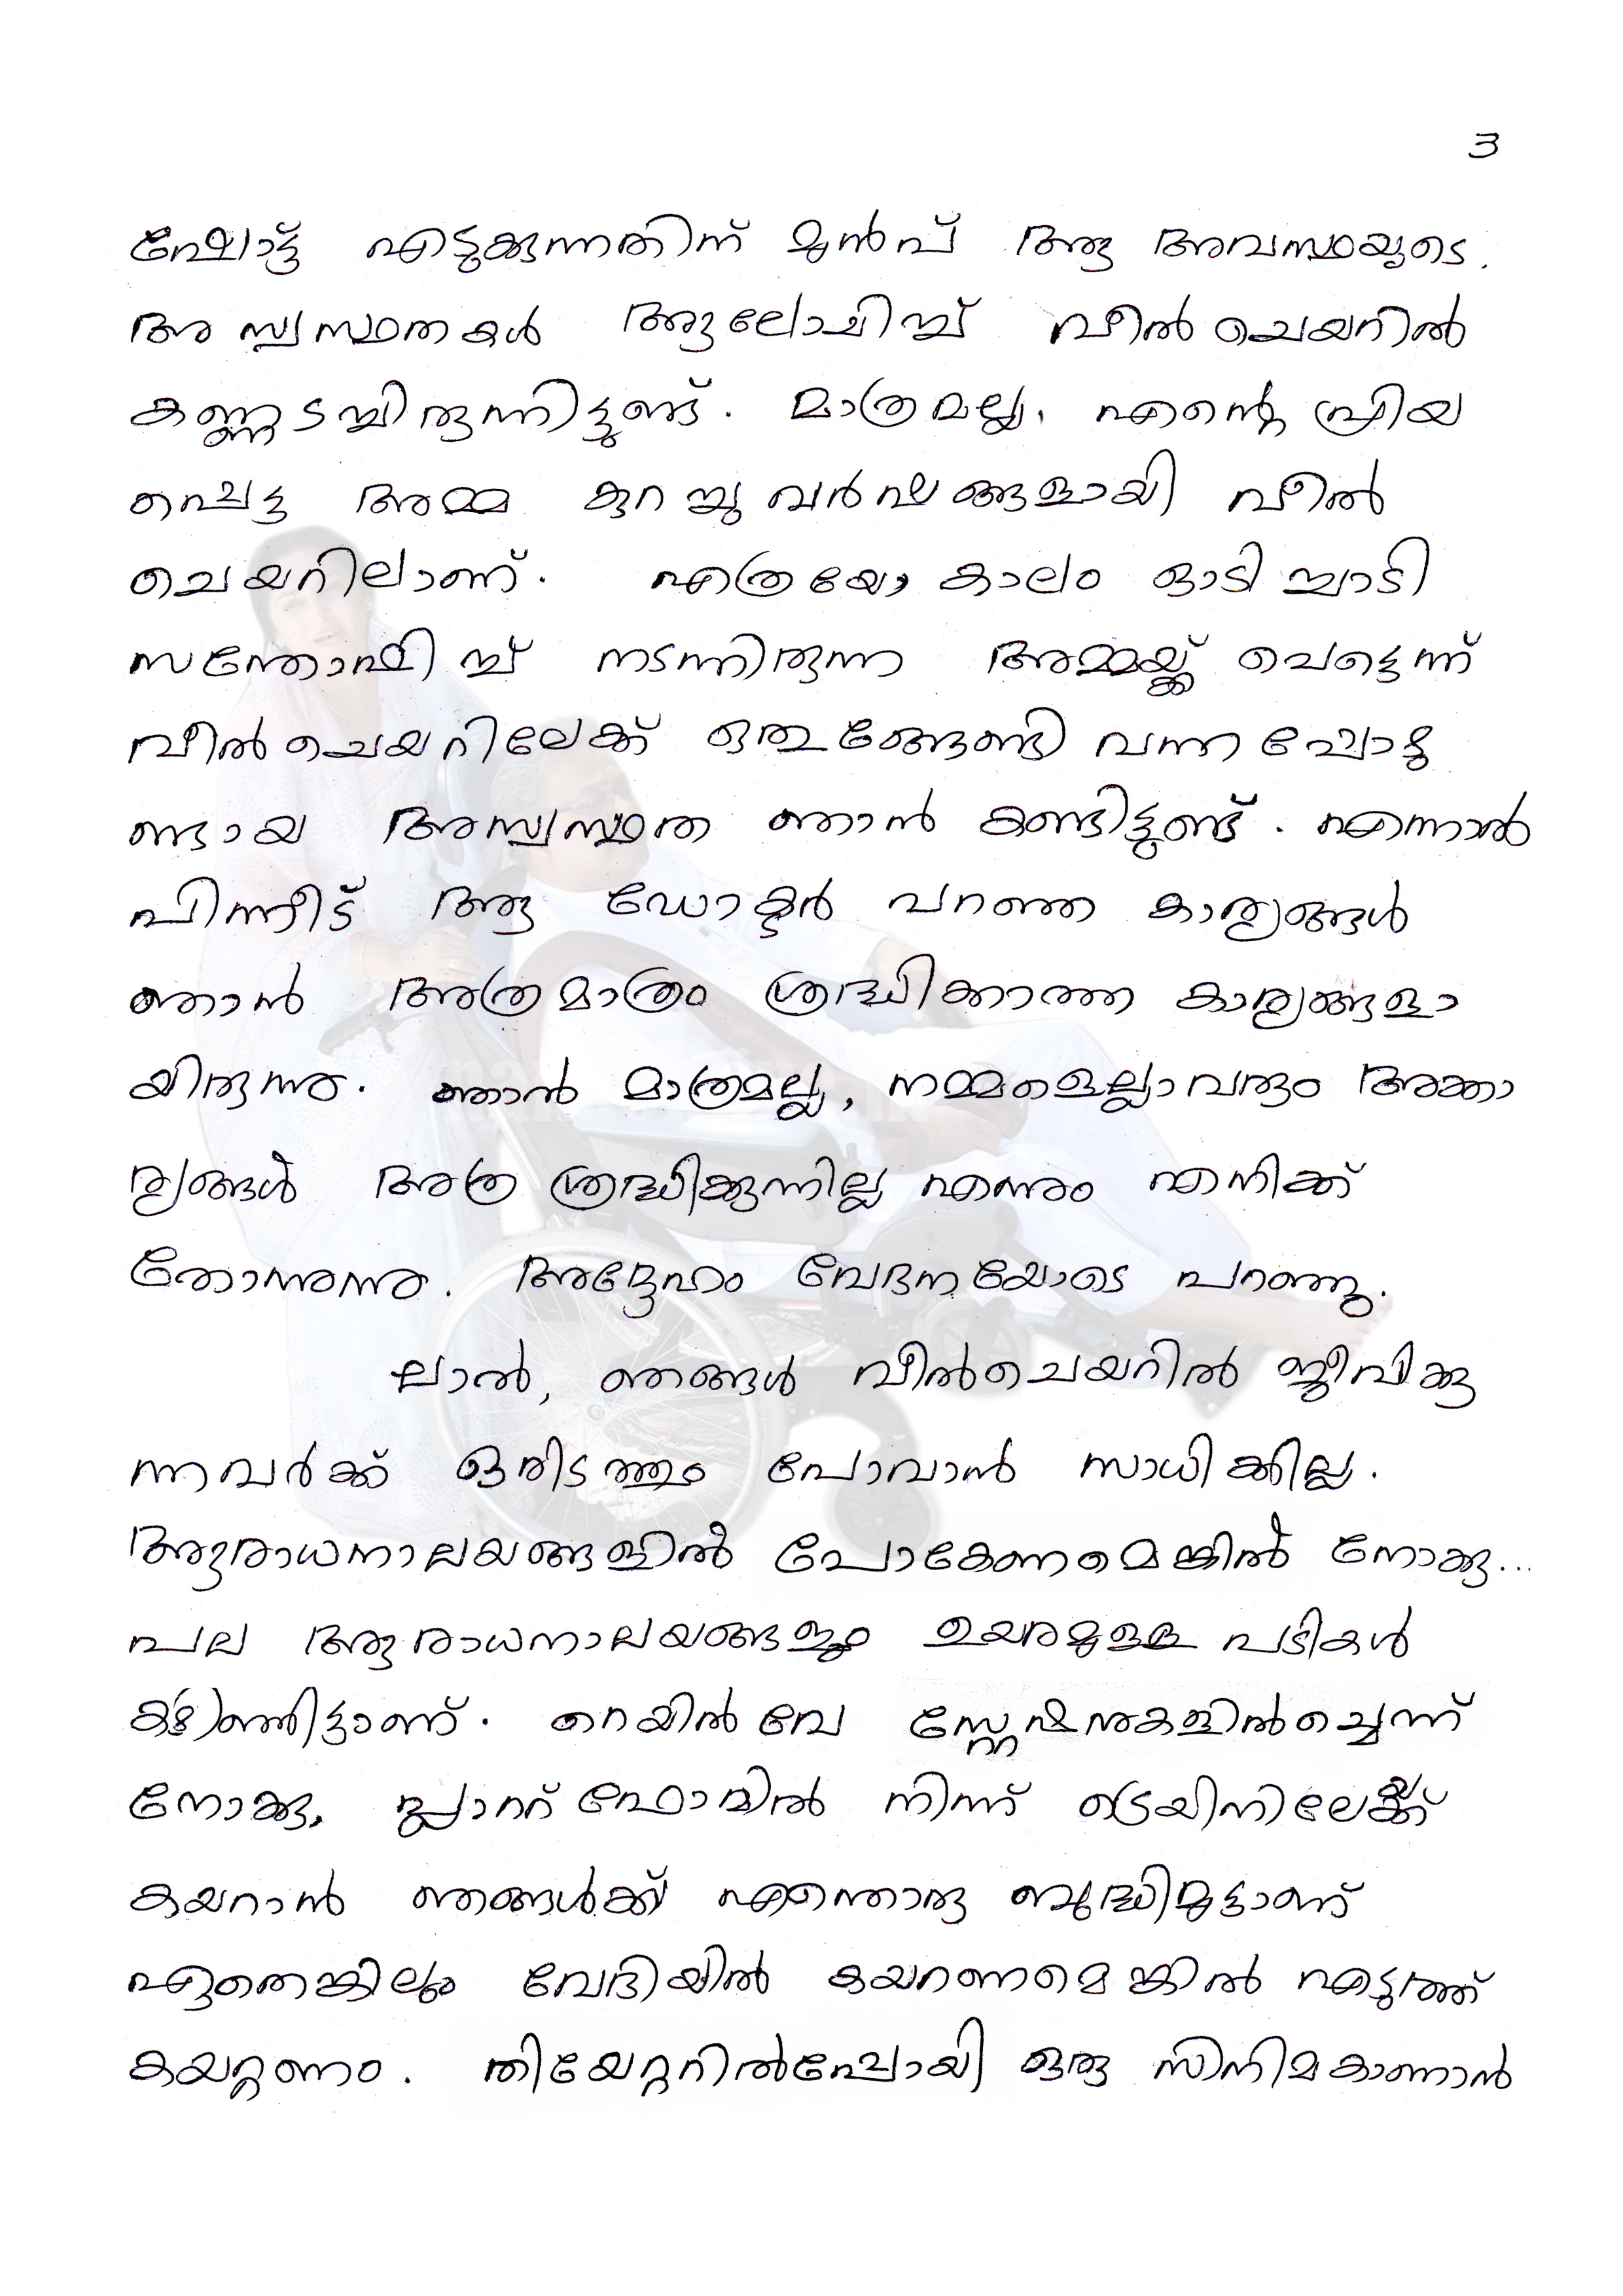 3
ഷോട്ട് എടുക്കുന്നതിന് മുൻപ് ആ അവസ്ഥയുടെ.
അസ്വസ്ഥതകൾ ആലോചിച്ച് വീൽചെയറിൽ
കണ്ണടച്ചിരുന്നിട്ടുണ്ട്. മാത്രമല്ല, എന്റെ പ്രിയ
പ്പെട്ട അമ്മ കുറച്ചു വർഷങ്ങളായി വീൽ
ചെയറിലാണ്. എത്രയോ കാലം ഓടിച്ചാടി
സന്തോഷിച്ച് നടന്നിരുന്ന അമ്മയ്ക്ക് പെട്ടെന്ന്
വീൽചെയറിലേക്ക് ഒതുങ്ങേണ്ടി വന്നപ്പോഴു
ണ്ടായ അസ്വസ്ഥത ഞാൻ കണ്ടിട്ടുണ്ട്. എന്നാൽ
പിന്നീട് ആ ഡോക്ടർ പറഞ്ഞ കാര്യങ്ങൾ
ഞാൻ അത്രമാത്രം ശ്രദ്ധിക്കാത്ത കാര്യങ്ങളാ
യിരുന്നു. ഞാൻ മാത്രമല്ല, നമ്മളെല്ലാവരും അക്കാ
ര്യങ്ങൾ അത്ര ശ്രദ്ധിക്കുന്നില്ല എന്നും എനിക്ക്
തോന്നുന്നു. അദ്ദേഹം വേദനയോടെ പറഞ്ഞു.
ലാൽ, ഞങ്ങൾ വീൽചെയറിൽ ജീവിക്കു
ന്നവർക്ക് ഒരിടത്തും പോവാൻ സാധിക്കില്ല.
ആരാധനാലയങ്ങളിൽ പോകേണമെങ്കിൽ നോക്കൂ...
പല ആരാധനാലയങ്ങളും ഉയരമുള്ള പടികൾ
കഴിഞ്ഞിട്ടാണ്. റെയിൽവേ സ്റ്റേഷനുകളിൽച്ചെന്ന്
നോക്കൂ, പ്ലാറ്റ്ഫോമിൽ നിന്ന് ട്രെയിനിലേക്ക്
കയറാൻ ഞങ്ങൾക്ക് എന്തൊരു ബുദ്ധിമുട്ടാണ്
ഏതെങ്കിലും വേദിയിൽ കയറണമെങ്കിൽ എടുത്ത്
കയറ്റണം. തിയേറ്ററിൽപ്പോയി ഒരു സിനിമകാണാൻ